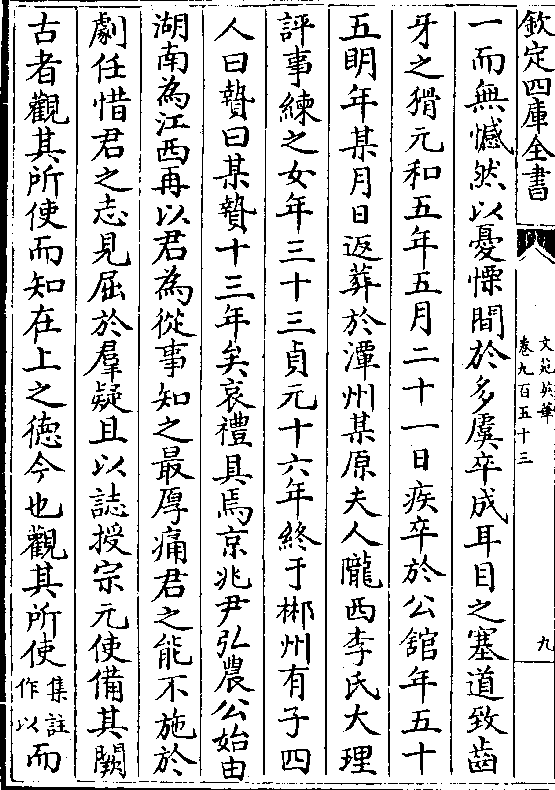 欽定四庫全書
文苑英華
卷九百五十三
九
一而無憾然以憂慄間於多虞卒成耳目之塞道致齒
牙之猾元和五年五月二十一日疾卒於公舘年五十
五明年某月日返葬於潭州某原夫人隴西李氏大理
評事練之女年三十三貞元十六年終于郴州有子四
人曰贄曰某贄十三年矣哀禮具焉京兆尹弘農公始由
湖南為江西再以君為從事知之最厚痛君之能不施於
劇任惜君之志見屈於羣疑且以誌授宗元使備其闕
古者觀其所使而知在上之徳今也觀其所使集註作以而